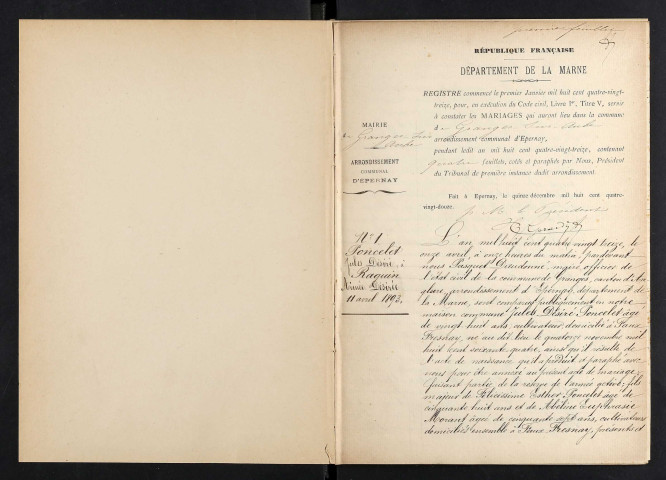 premier feuillet
RÉPUBLIQUE FRANÇAISE
DÉPARTEMENT DE LA MARNE
REGISTRE commencé le premier Janvier mil huit cent quatre-vingt-
treize, pour, en exécution du Code civil, Livre Ier, Titre V, servir
à constater les MARIAGES qui auront lieu dans la commune
de Granges sur Aube
arrondissement communal d'Epernay,
pendant ledit an mil huit cent quatre-vingt-treize, contenant
quatre feuillets, cotés et paraphés par Nous, Président
du Tribunal de première instance dudit arrondissement.
Fait à Epernay, le quinze décembre mil huit cent quatre-
vingt-douze.
p. M. le Président
MAIRIE
de Granges sur
Aube
ARRONDISSEMENT
COMMUNAL
D'ÉPERNAY
No 1
Poncelet
Jules Désiré
&
Raguin
Désirée
11 avril 1893.
L'an mil huit cent quatre vingt treize, le
onze avril, à onze heures du matin, pardevant
nous Pasquet Dieudonné, maire officier de
l'état civil de la commune de Granges, canton d'An-
glure, arrondissement d'Epernay, département de
la Marne, sont comparus publiquement en notre
maison commune Jules Désiré Poncelet âgé
de vingt huit ans, cultivateur domicilié à Faux
Fresnay, né au dit lieu le quatorze novembre mil
huit cent soixante quatre, ainsi qu'il résulte de
l'acte de naissance qu'il a produit et paraphé avec
nous pour être annexé au présent acte de mariage,
faisant partie de la réserve de l'armée active; fils
majeur de Poncelet âgé de
cinquante huit ans et de Euphrasie
Morant âgée de cinquante sept ans, cultivateurs
domiciliés ensemble à Faux Fresnay, présents et